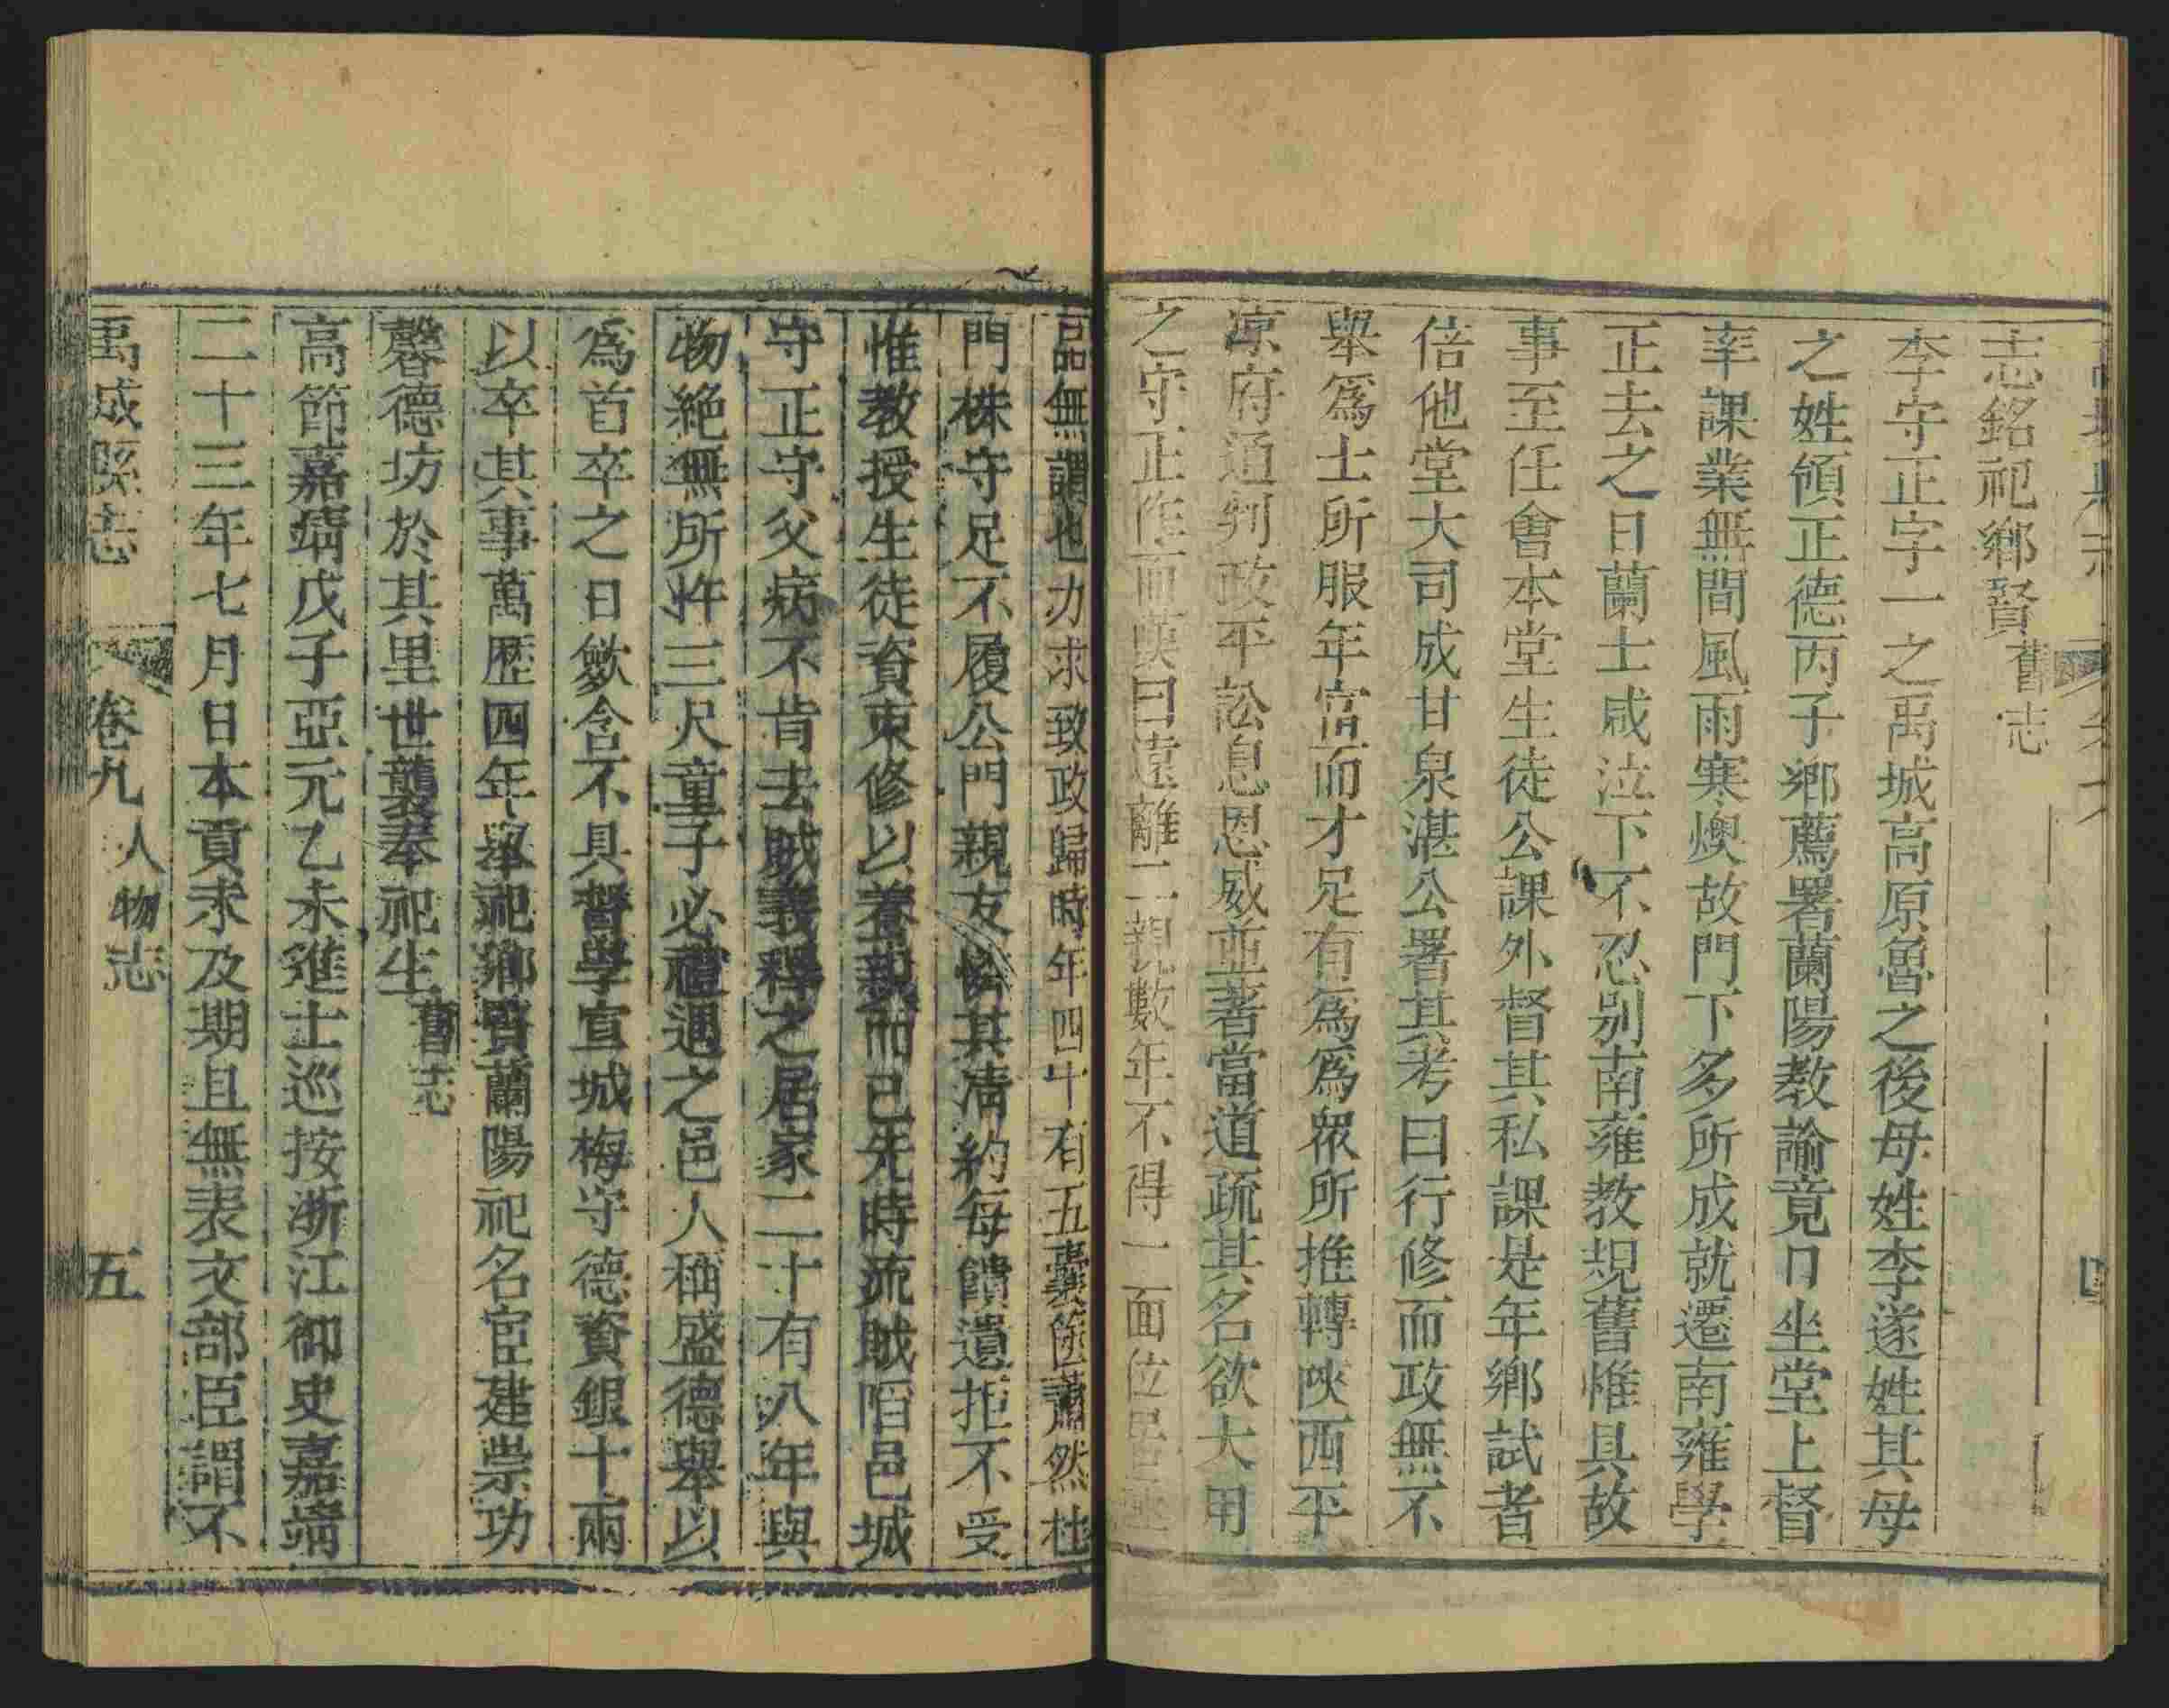 志銘祀鄉賢舊志
李守正字一之禹城高原魯之後母姓李遂姓其母
之姓領正德丙子鄉薦署蘭陽教諭竟日坐堂上督
率課業無間風雨寒燠故門下多所成就遷南雍學
正去之日蘭士咸泣下不忍别南雍教規舊惟具故
事至任會本堂生徒公課外督其私課是年鄉試者
倍他堂大司成甘泉湛公署其考曰行修而政無不
舉爲士所服年富而才足有爲爲衆所推轉陝西平
凉府通判政平訟息恩威並著當道疏其名欲大用
之守正作而嘆曰遠離二親數年不得一面位晋
品無謂也力求致政歸時年四十有五囊篋蕭然杜
門株守足不履公門親友憐其清約每饋遺拒不受
惟教授生徒資束修以養親而已先時流賊陷邑城
守正守父病不肯去賊義釋之居家二十有八年與
物絶無所忤三尺童子必禮遇之邑人稱盛德舉以
爲首卒之日斂含不具督學宣城梅守德資銀十兩
以卒其事萬歷四年舉祀鄉賢蘭陽祀名宦建崇功
馨德坊於其里世襲奉祀生舊志
高節嘉靖戊子亞元乙未進士巡按浙江御史嘉靖
二十三年七月日本貢未及期且無表文部臣謂不
禹城縣志 卷九 人物志 五